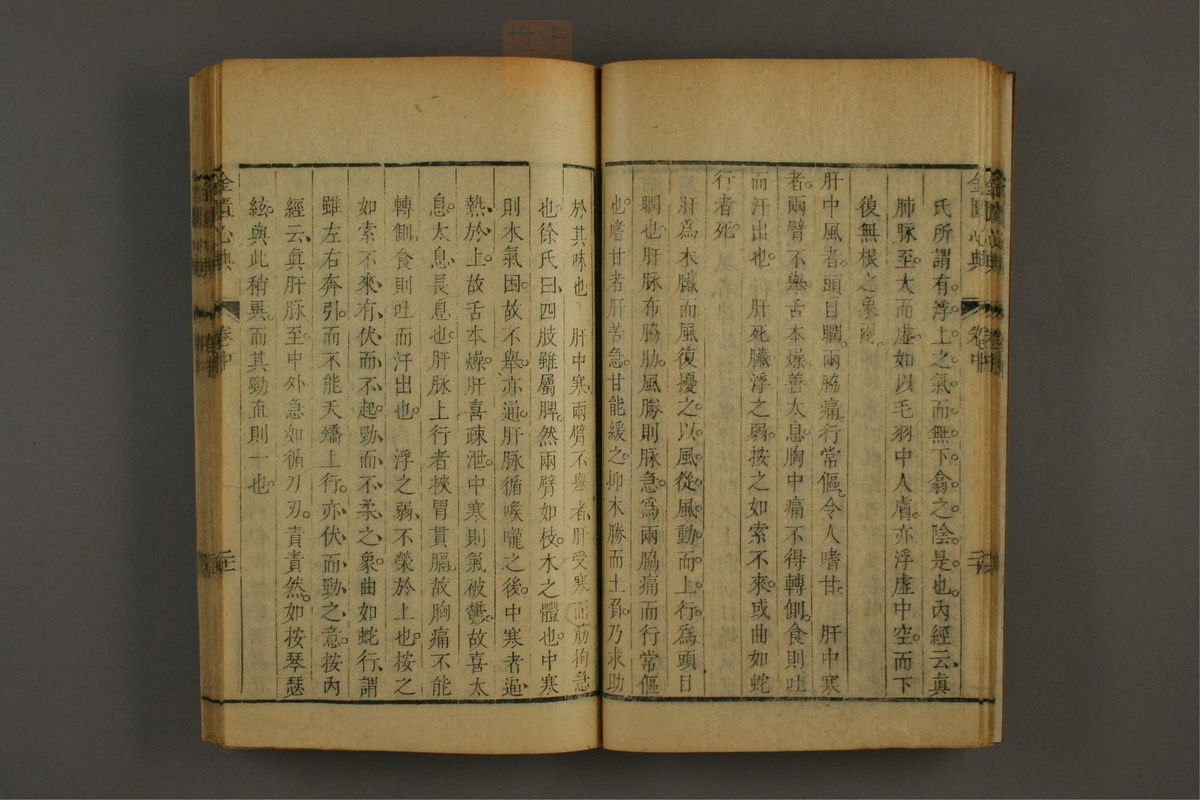 氏所謂有浮上之氣而無下翕之陰是也內經云真
肺脉至大而虛如以毛羽中人膚亦浮虛中空而下
復無根之象爾
肝中風者頭目瞤兩脇痛行常傴令人嗜甘 肝中寒
者兩臂不舉舌本燥善太息胸中痛不得轉側食則吐
而汗出也 肝死臟浮之弱按之如索不來或曲如蛇
行者死
肝為木臟而風復擾之以風從風動而上行為頭目
瞤也肝脉布脇肋風勝則脉急為兩脇痛而行常傴
也嗜甘者肝苦急甘能緩之抑木勝而土負乃求助
於其味也 肝中寒兩臂不舉者肝受寒而筋拘急
也徐氏曰四肢雖屬脾然兩臂如枝木之體也中寒
則木氣困故不舉亦通肝脉循喉嚨之後中寒者逼
熱於上故舌本燥肝喜疎泄中寒則氣被鬱故喜太
息太息長息也肝脉上行者挾胃貫膈故胸痛不能
轉側食則吐而汗出也 浮之弱不榮於上也按之
如索不來有伏而不起勁而不柔之象曲如蛇行謂
雖左右奔引而不能夭矯上行亦伏而勁之意按內
經云真肝脉至中外急如循刀刃責責然如按琴瑟
絃與此稍異而其勁直則一也
金匱心典 卷中 二十
金匱心典 卷中 二十一